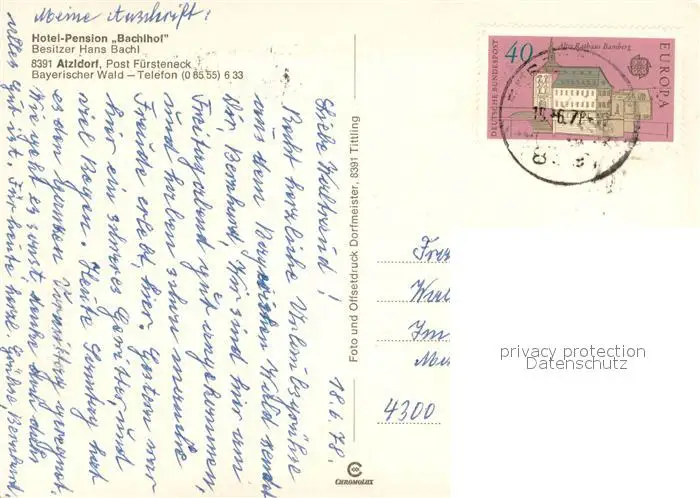 Meine Anschrift:
Hotel-Pension „Bachlhof"
Besitzer Hans Bachl
8391 Atzldorf, Post Fürsteneck
Bayerischer Wald – Telefon (0 85 55) 6 33
18.6.78.
Liebe Waltraud!
Recht herzliche Urlaubsgrüße
aus dem Bayrischen Wald sendet
Dir, Bernhard, Wir sind hier am
Freitagabend gut angekommen,
und haben schon manche
Freude erlebt, hier. Gestern war
hier ein schweres Gewitter, und
viel Regen. Heute Sonntag hat
es den ganzen Vormittag geregnet.
Wie geht es sonst, denke daß
alles gut ist. Für heute, herzl. Grüße, Bernhard.
Foto und Offsetdruck Dorfmeister, 8391 Tittling
CHROMOLUX
DEUTSCHE BUNDESPOST
40
Altes Rathaus Bamberg
EUROPA
4300
privacy protection
Datenschutz